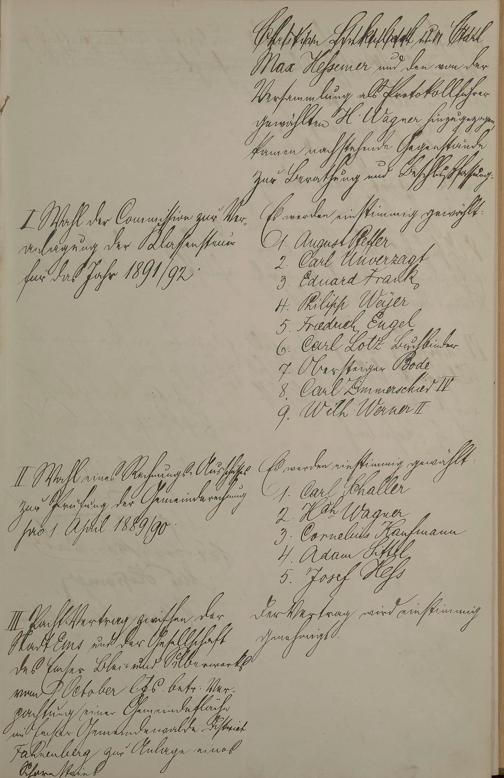 Max Hessemer und den von der
Versammlung als Protokollführer
gewählten H. Wagner hinzugezogen
kamen nachstehende Gegenstände
zur Berathung und Beschlußfassung.
I Wahl der Commission zur Ver-
anlagung der Klassensteuer
für das Jahr 1891/92.
Es werden einstimmig gewählt:
1. August
2. Carl Unverzagt
3. Eduard Frank
4. Philipp Weyer
5. Friedrich Engel
6. Carl Lotz Buchbinder
7. Obersteiger Bode
8. Carl Zimmerschied IV
9. Wilh Werner II
II Wahl eines Rechnungs-Ausschußes
zur Prüfung der Gemeinderechnung
pro 1 April 1889/90.
Es werden einstimmig gewählt
1. Carl Schaller
2. Wagner
3. Cornelius Kaufmann
4. Adam
5. Josef Heß
III Pacht-Vertrag zwischen der
Stadt Ems und der Gesellschaft
des Emser Blei- und Silberwerks
vom October cts. betr. Ver-
pachtung einer Gemeindefläche
im Emser Gemeindewalde District
Fahnenberg zur Anlage eines
Schornsteins
Der Vertrag wird einstimmig
genehmigt.